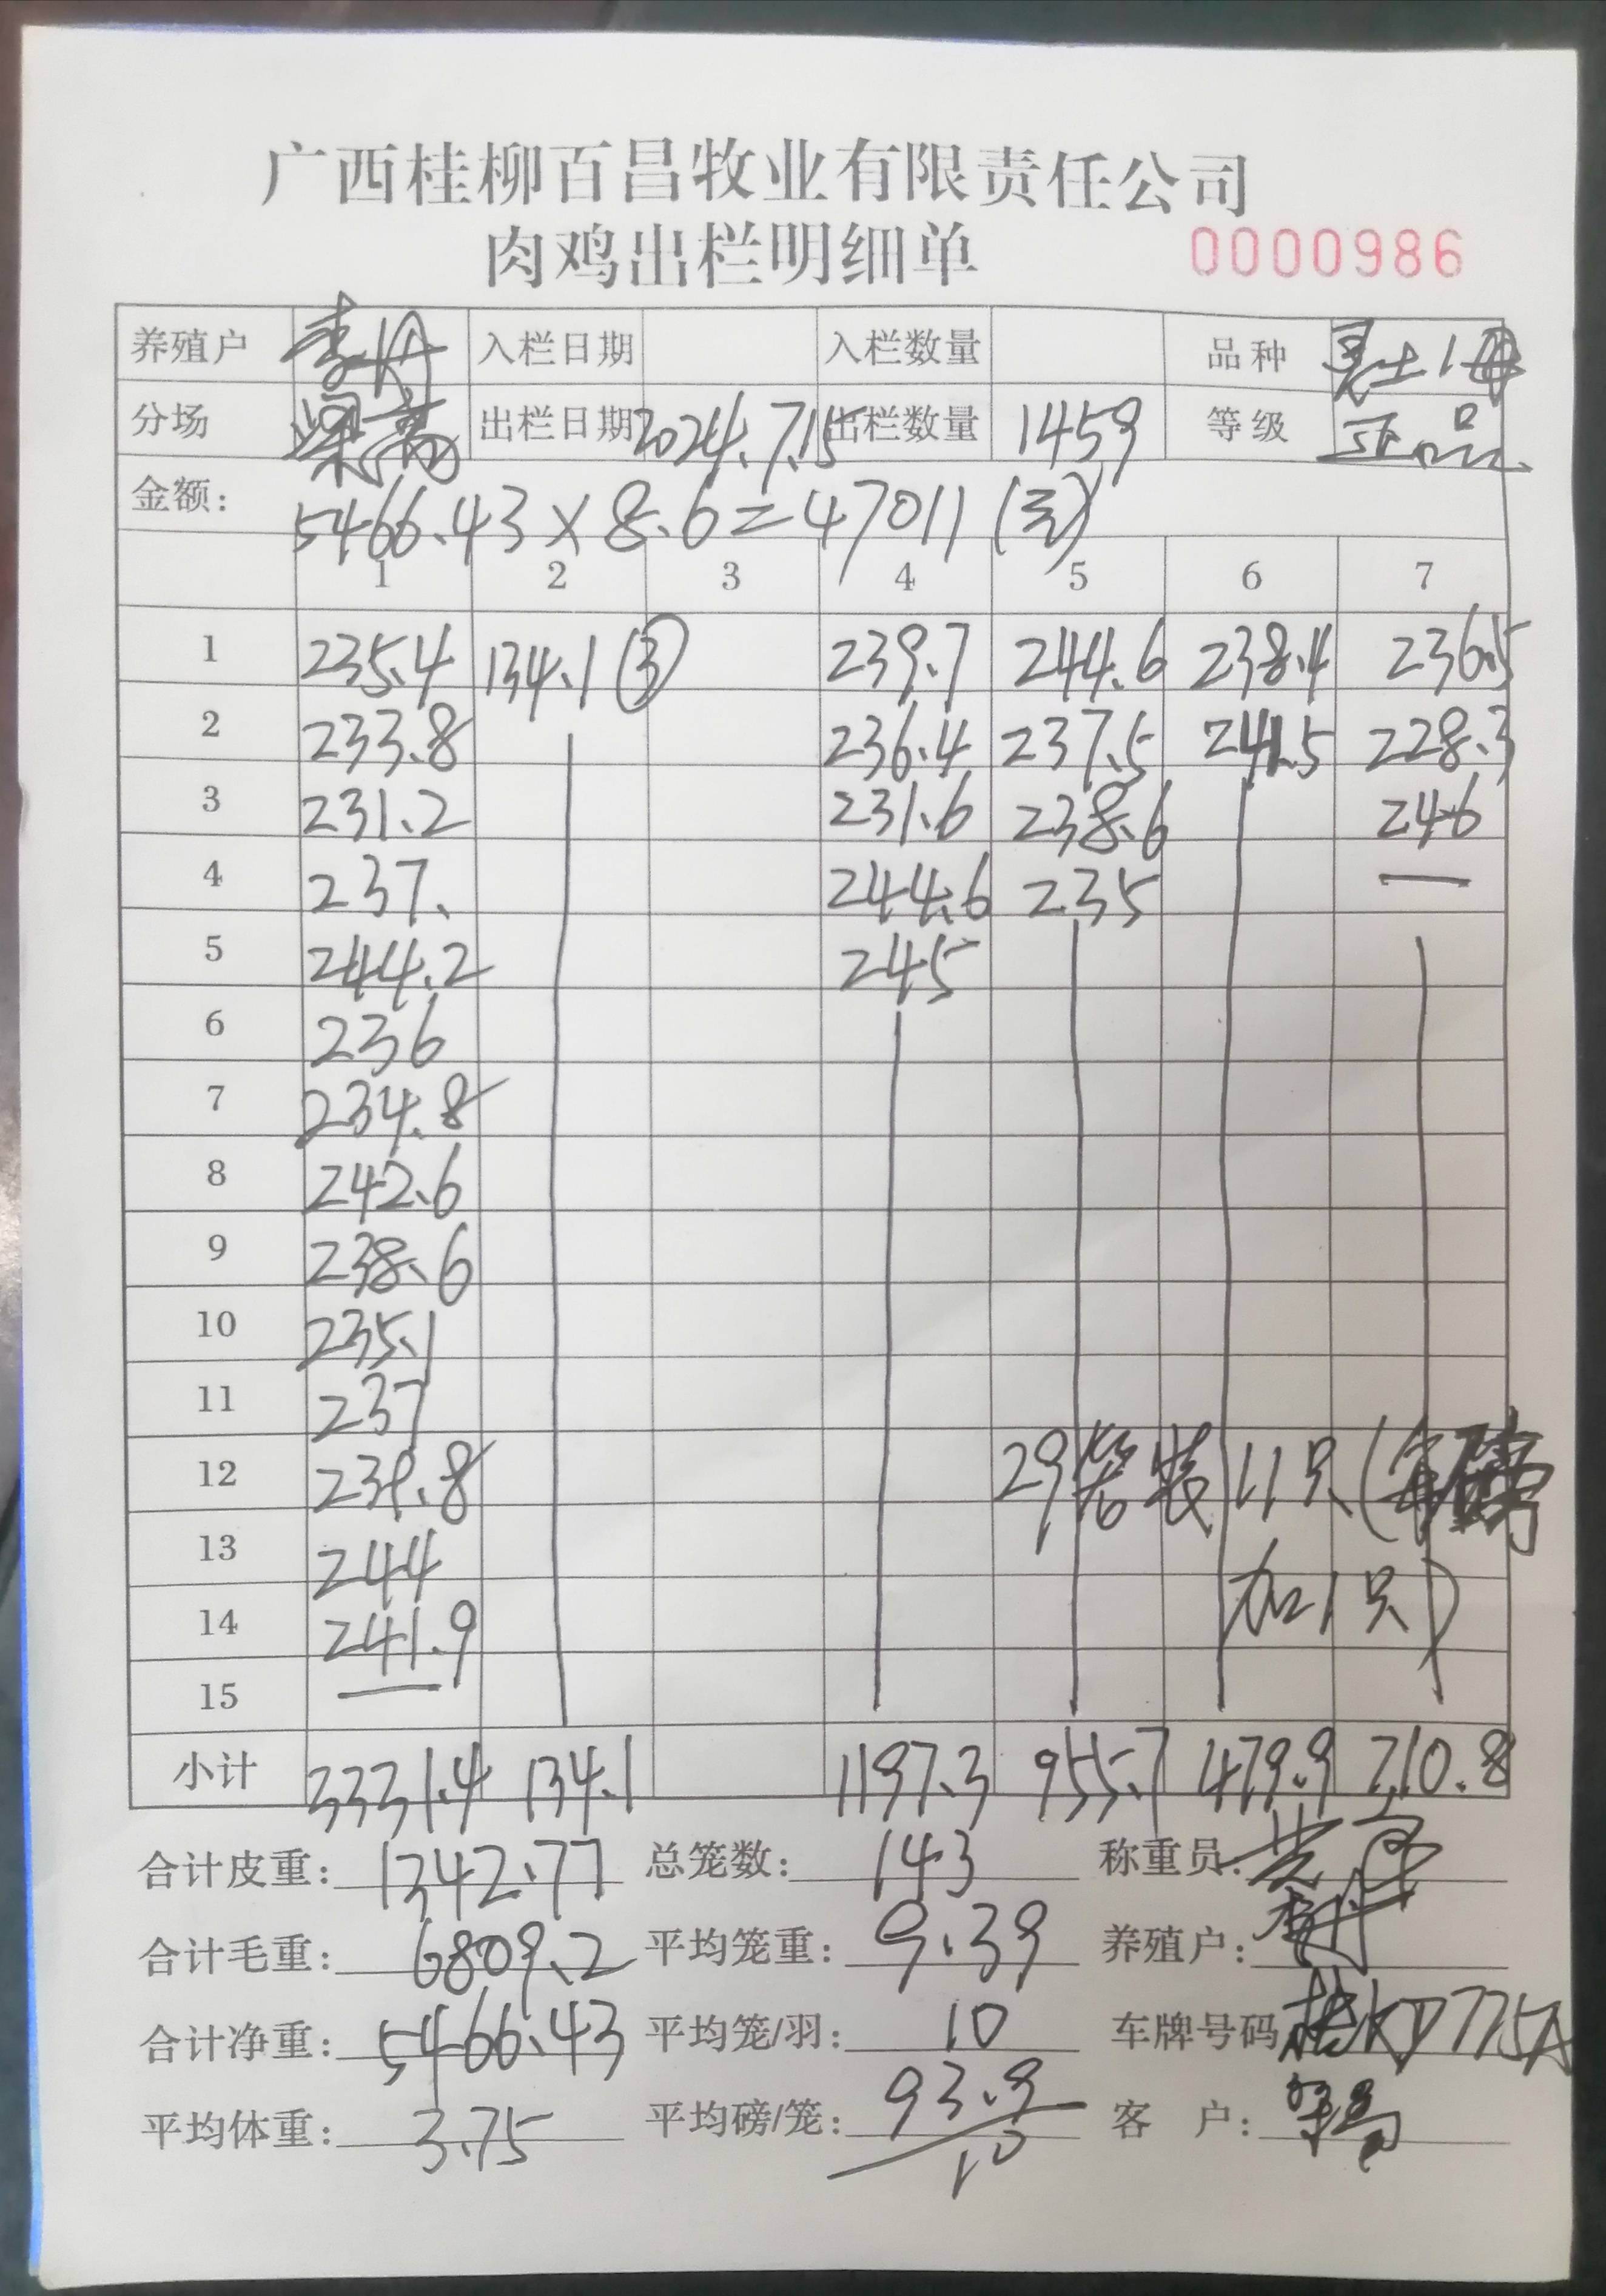 广西桂柳百昌牧业有限责任公司
肉鸡出栏明细单 0000986
养殖户 李丹 入栏日期 入栏数量 品种 灵土1母
分场 出栏日期 2024.7.15 出栏数量 1459 等级 正品
金额: 5466.43×8.6=47011(元)
1 2 3 4 5 6 7
1 235.4 134.1③ 239.7 244.6 238.4 236.5
2 233.8 236.4 237.5 241.5 228.3
3 231.2 231.6 238.6 246
4 237. 244.6 235 —
5 244.2 245
6 236
7 234.8
8 242.6
9 238.6
10 235.1
11 237
12 239.8 29笼装11只(每磅
13 244 加1只)
14 241.9
15 —
小计 3331.4 134.1 1197.3 955.7 479.9 710.8
合计皮重: 1342.77 总笼数: 143 称重员:
合计毛重: 6809.2 平均笼重: 9.39 养殖户: 李丹
合计净重: 5466.43 平均笼/羽: 10 车牌号码 桂KD775A
平均体重: 3.75 平均磅/笼: 93.9/10 客 户: